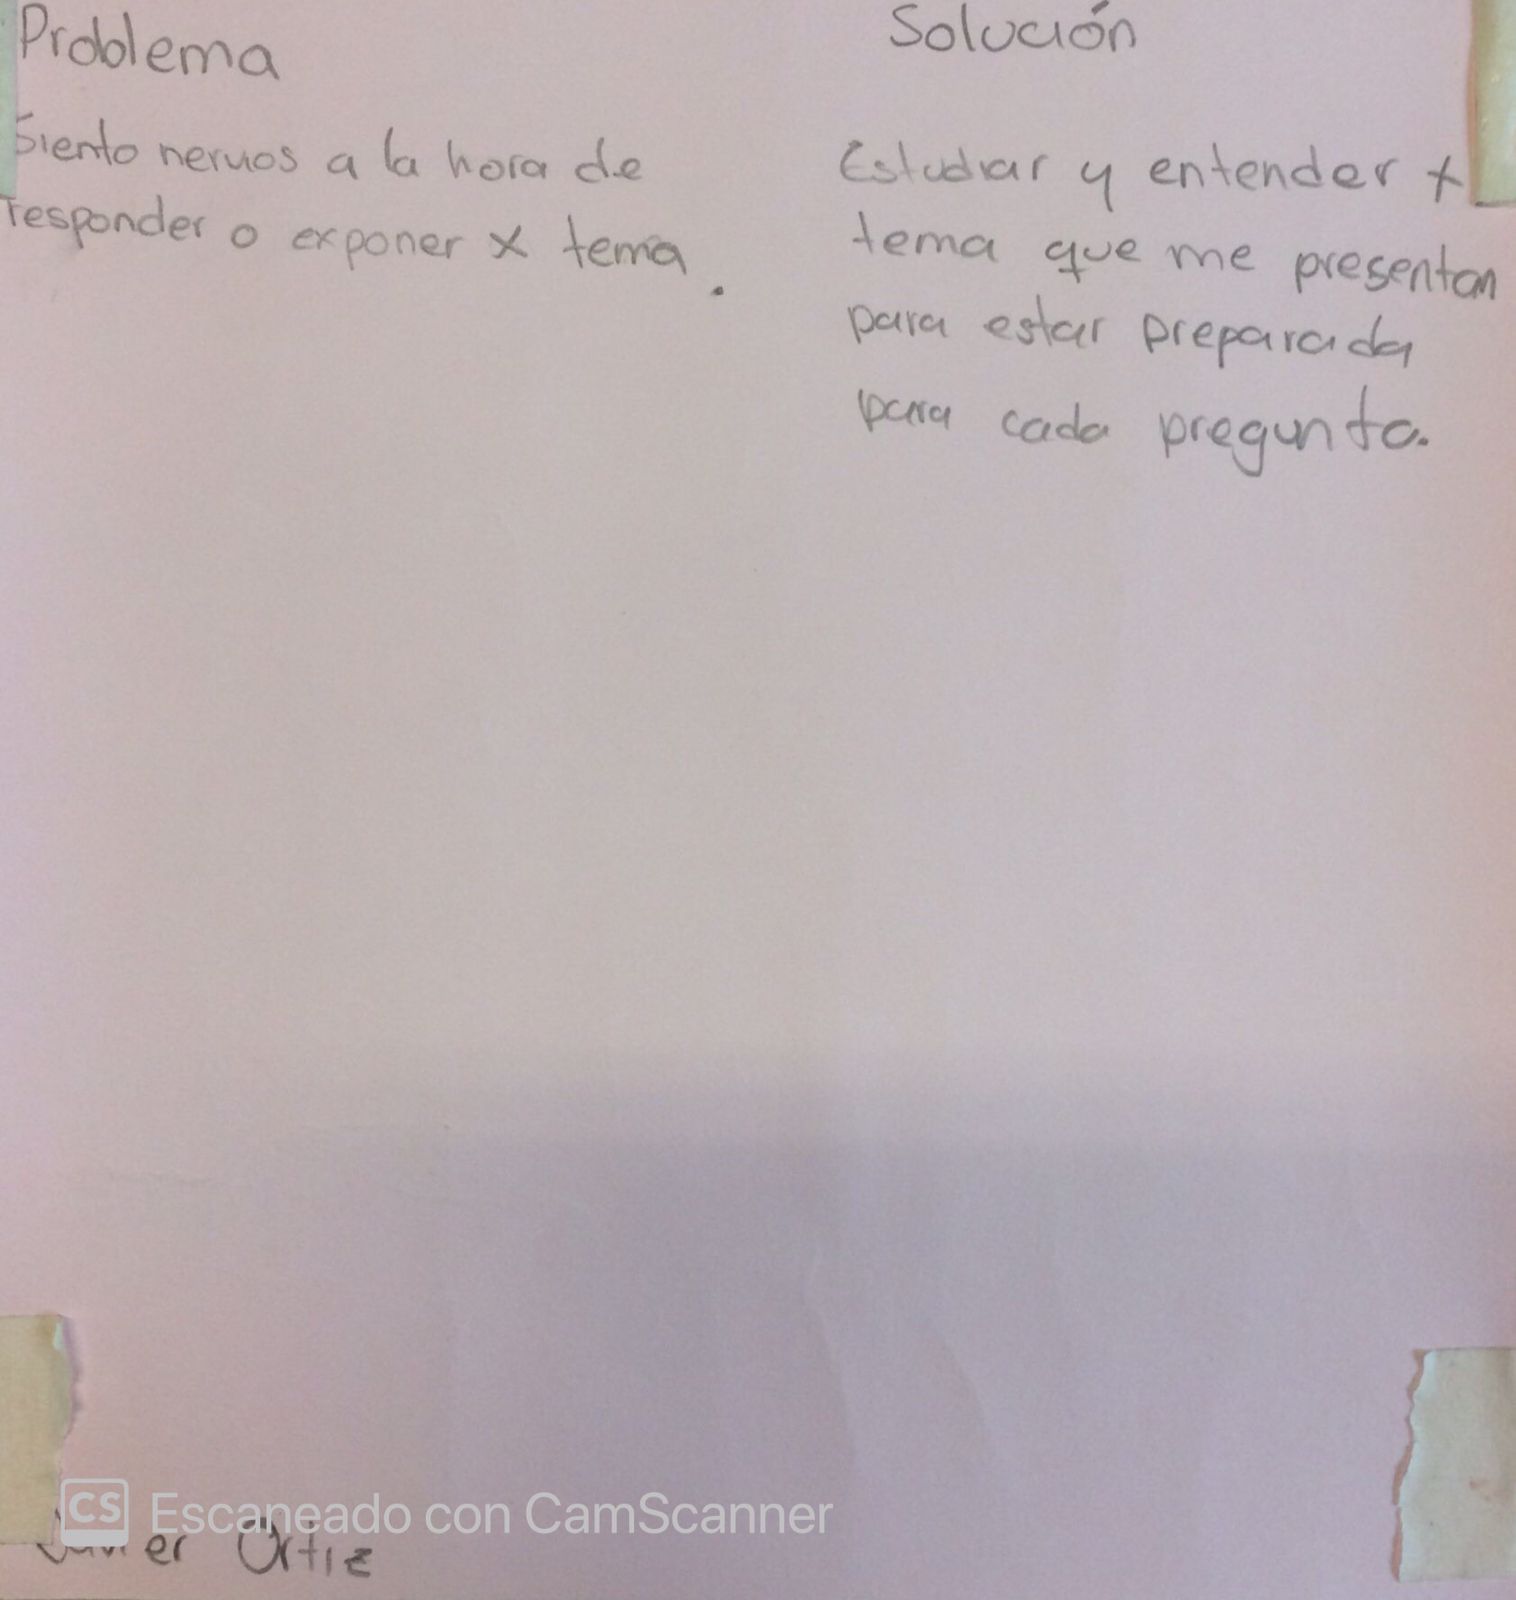 Problema
Siento nervios a la hora de
responder o exponer x tema.
Solución
Estudiar y entender x
tema que me presentan
para estar preparada
para cada pregunta.
CS Escaneado con CamScanner
Javier Ortiz